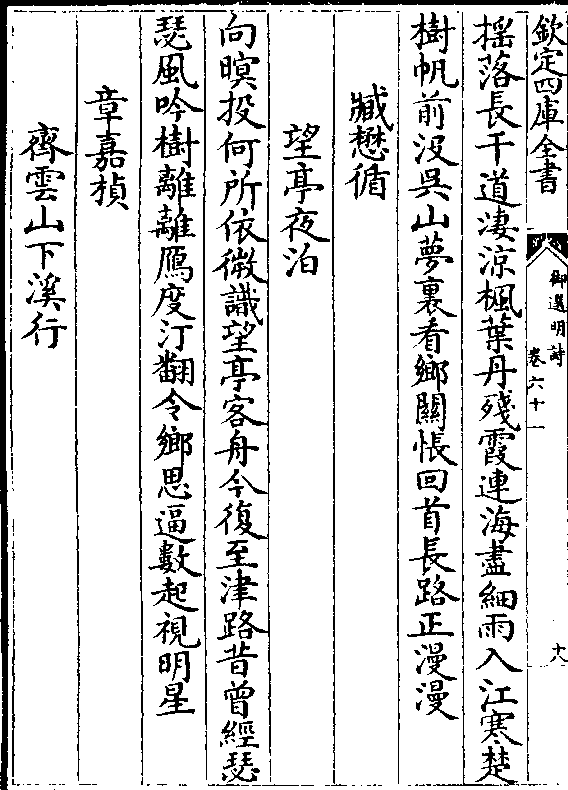 欽定四庫全書
御選明詩
卷六十一
十八
揺落長干道淒涼楓葉丹殘霞連海盡細雨入江寒楚
樹帆前沒吳山夢裏看鄉關悵回首長路正漫漫
臧懋循
望亭夜泊
向暝投何所依微識望亭客舟今復至津路昔曾經瑟
瑟風吟樹離離鴈度汀翻令鄉思逼數起視明星
章嘉楨
齊雲山下溪行